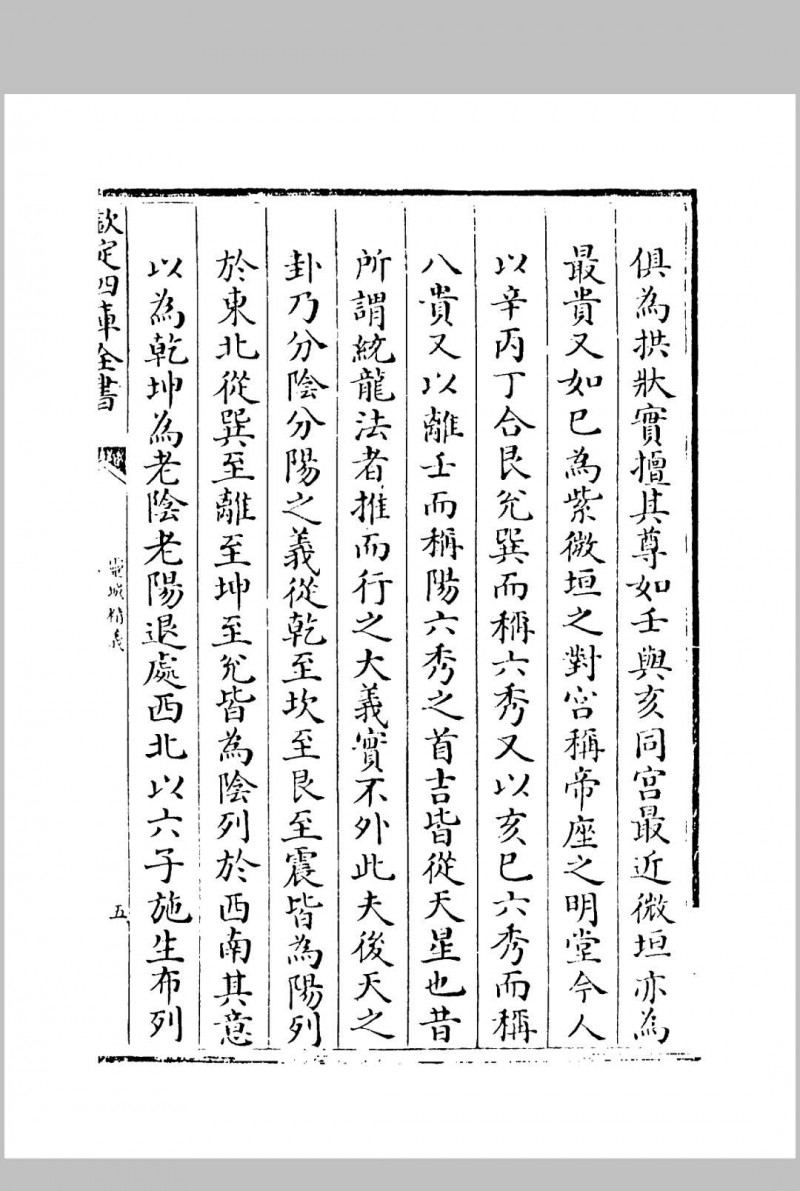 俱為拱狀實擅其尊如壬與亥同宮最近微垣亦為
最貴又如巳為紫微垣之對宮稱帝座之明堂今人
以辛丙丁合艮兊巽而稱六秀又以亥巳六秀而稱
八貴又以離壬而稱陽六秀之首吉皆從天星也昔
所謂統龍法者推而行之大義實不外此夫後天之
卦乃分陰分陽之義從乾至坎至艮至震皆為陽列
於東北從巽至離至坤至兊皆為陰列於西南其意
以為乾坤為老陰老陽退處西北以六子施生布列
欽定四庫全書
靈城精義
五